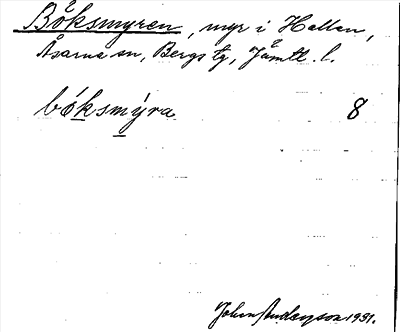 Böksmyren, myr i Hallen,
Åsarna sn, Bergs tg, Jämtl. l.
böksmýra 8
John Anderzson 1931.